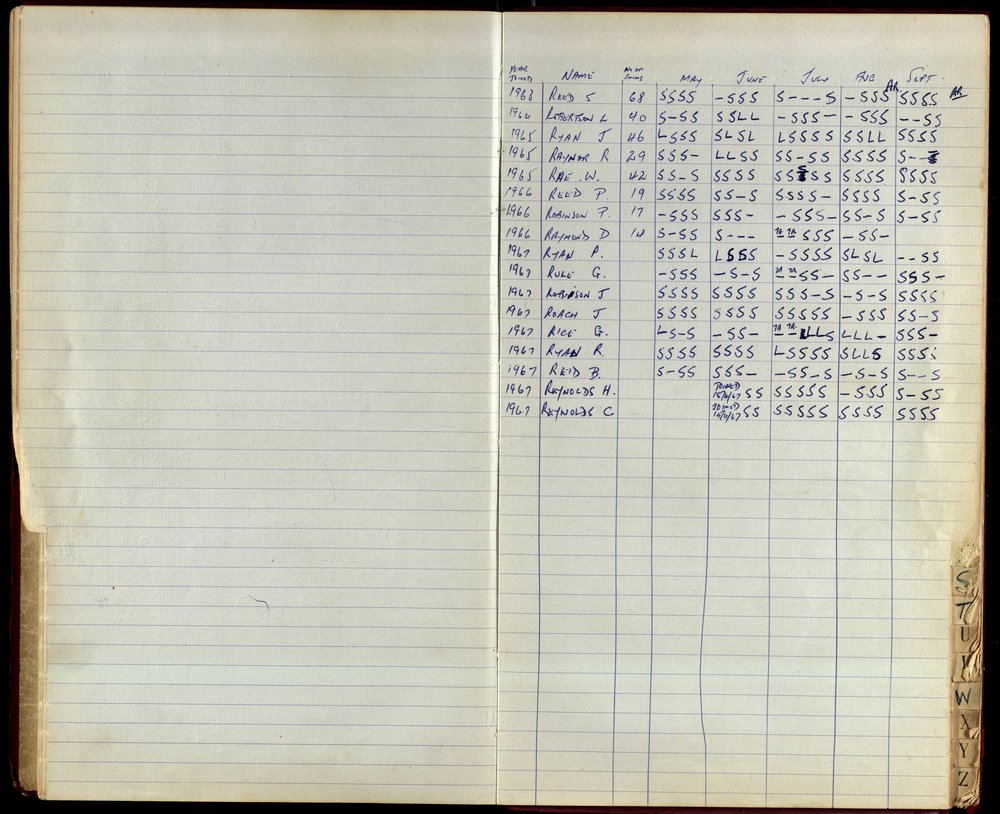 YEAR JOINED NAME NO OF SWIMS MAY JUNE JULY AUG SEPT.
1963 REED S 68 SSSS -SSS S---S -SSS AR SSSS AR
1964 ROBERTSON L 40 S-SS SSLL -SSS- -SSS --SS
1965 RYAN J 46 LSSS SLSL LSSSS SSLL SSSS
1965 RAYNOR R 29 SSS- LLSS SS-SS SSSS S--
1965 RAE .W. 42 SS-S SSSS SSSSS SSSS SSSS
1966 REED P. 19 SSSS SS-S SSSS- SSSS S-SS
1966 ROBINSON P. 17 -SSS SSS- -SSS- SS-S S-SS
1966 RAYMOND D 14 S-SS S--- SSS -SS-
1967 RYAN P. SSSL LSSS -SSSS SLSL --SS
1967 RULE G. -SSS -S-S SS- SS-- SSS-
1967 ROBINSON J SSSS SSSS SSS-S -S-S SSSS
1967 ROACH J SSSS SSSS SSSSS -SSS SS-S
1967 RICE G. LS-S -SS- LLS LLL- SSS-
1967 RYAN R. SSSS SSSS LSSSS SLLS SSSS
1967 REID B. S-SS SSS- -SS-S -S-S S--S
1967 REYNOLDS H. JOINED 15/6/67 SS SSSSS -SSS S-SS
1967 REYNOLDS C JOINED 15/6/67 SS SSSSS SSSS SSSS
S
T
U
W
X
Y
Z